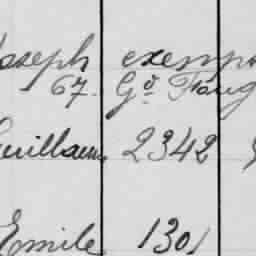 Joseph exemp
67. Gd Foug
Guillaume 2342
Emile 1301